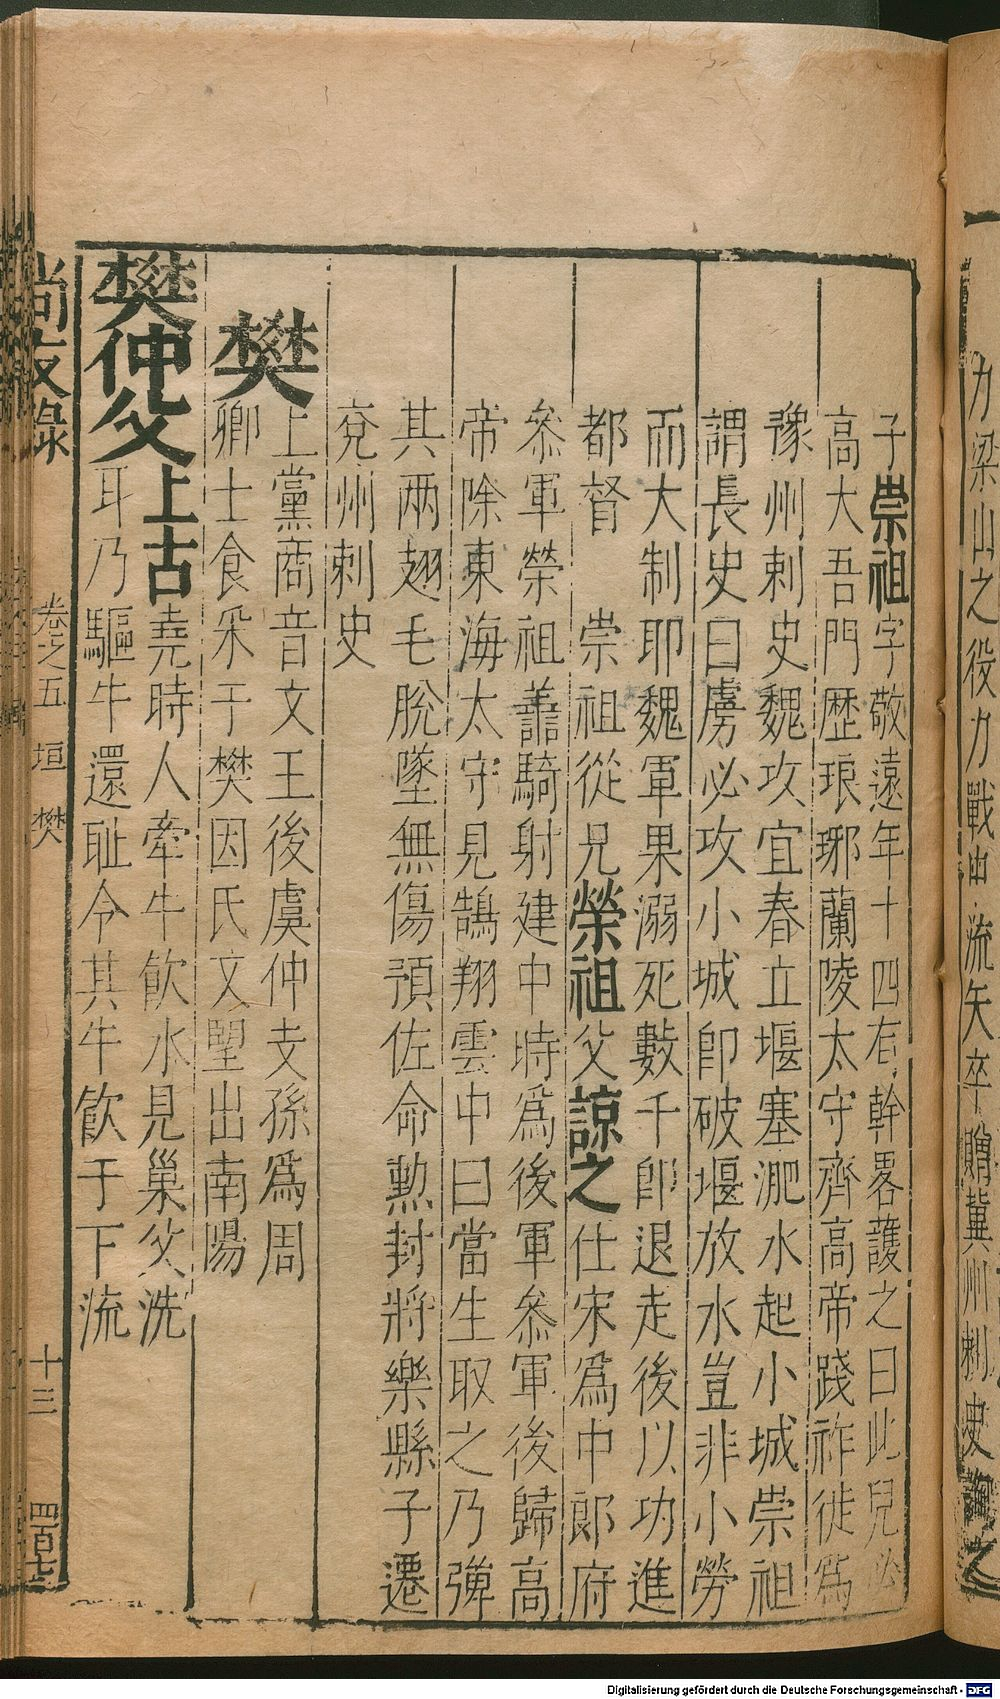 子崇祖字敬遠年十四有幹畧護之曰此兒必
高大吾門歷琅琊蘭陵太守齊高帝踐祚徙為
豫州刺史魏攻宜春立堰塞淝水起小城崇祖
謂長史曰虜必攻小城即破堰放水豈非小勞
而大制耶魏軍果溺死數千即退走後以功進
都督　崇祖從兄榮祖父諒之仕宋為中郎府
叅軍榮祖善騎射建中時爲後軍叅軍後歸高
帝除東海太守見鵠翔雲中曰當生取之乃彈
其兩翅毛脫墜無傷預佐命勲封將樂縣子遷
兗州刺史
樊
上黨商音文王後虞仲支孫爲周
卿士食采于樊因氏文望出南陽
樊仲父上古
堯時人牽牛飲水見巢父洗
耳乃驅牛還耻令其牛飲于下流
尚友錄
卷之五　垣　樊
十三
四百七
力梁山之役力戰中流矢卒贈冀州刺史
Digitalisierung gefördert durch die Deutsche Forschungsgemeinschaft - DFG